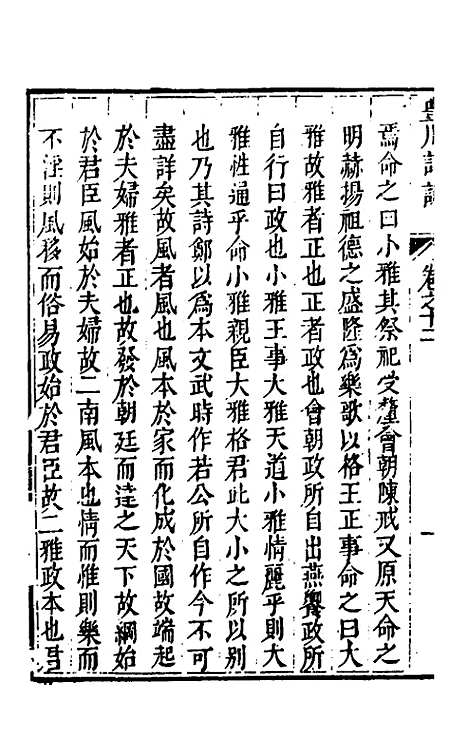 豐川詩說
卷之十二
一
焉命之曰小雅其祭祀受釐會朝陳戒又原天命之
明赫揚祖德之盛隆爲樂歌以格王正事命之曰大
雅故雅者正也正者政也會朝政所自出燕饗政所
自行曰政也小雅王事大雅天道小雅情麗乎則大
雅性通乎命小雅親臣大雅格君此大小之所以別
也乃其詩鄭以爲本文武時作若公所自作今不可
盡詳矣故風者風也風本於家而化成於國故端起
於夫婦雅者正也故發於朝廷而達之天下故綱始
於君臣風始於夫婦故二南風本也情而惟則樂而
不淫則風移而俗易政始於君臣故二雅政本也君